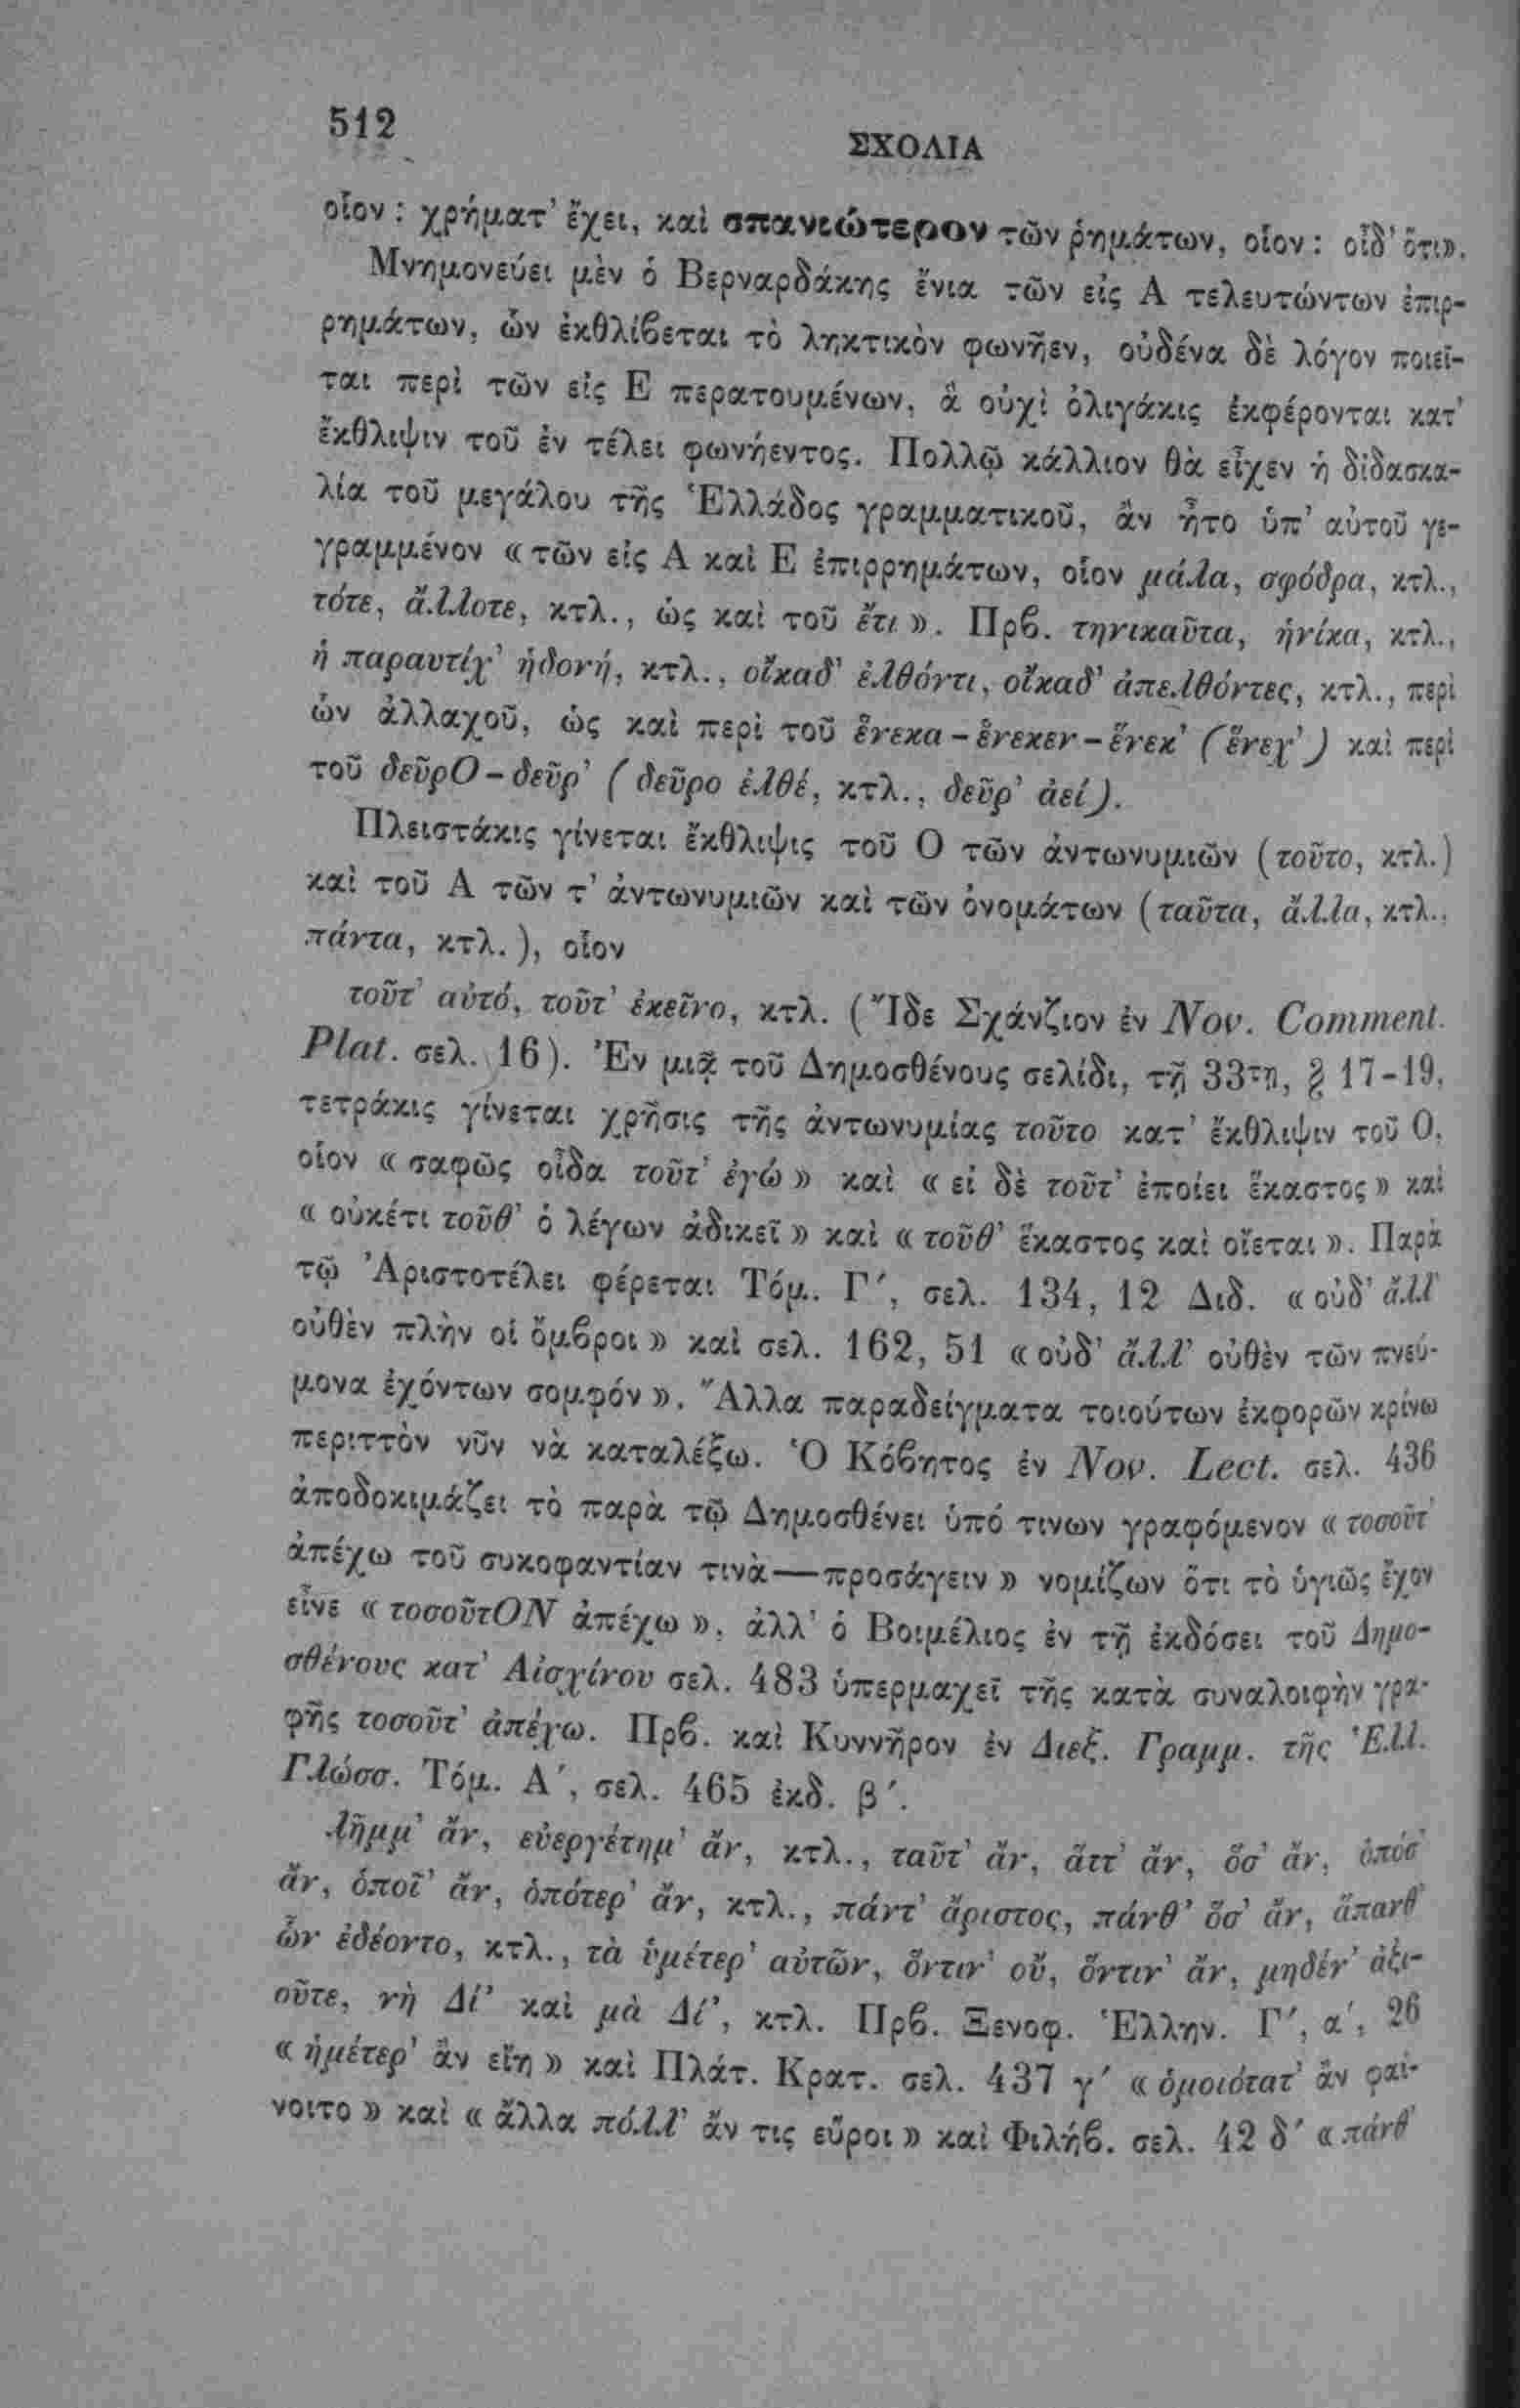 512
ΣΧΟΛΙΑ
οἷον : χρήματ' ἔχει, καὶ σπανιώτερον τῶν ῥημάτων, οἷον : οἶδ' ὅτι».
Μνημονεύει μὲν ὁ Βερναρδάκης ἔνια τῶν εἰς Α τελευτώντων ἐπιρ-
ρημάτων, ὧν ἐκθλίβεται τὸ ληκτικὸν φωνῆεν, οὐδένα δὲ λόγον ποιεῖ-
ται περὶ τῶν εἰς Ε περατουμένων, ἃ οὐχὶ ὀλιγάκις ἐκφέρονται κατ'
ἔκθλιψιν τοῦ ἐν τέλει φωνήεντος. Πολλῷ κάλλιον θὰ εἶχεν ἡ διδασκα-
λία τοῦ μεγάλου τῆς Ἑλλάδος γραμματικοῦ, ἂν ἦτο ὑπ' αὐτοῦ γε-
γραμμένον «τῶν εἰς Α καὶ Ε ἐπιρρημάτων, οἷον μάλα, σφόδρα, κτλ.,
τότε, ἄλλοτε, κτλ., ὡς καὶ τοῦ ἔτι». Πρβ. τηνικαῦτα, ἡνίκα, κτλ.,
ἡ παραυτίχ' ἡδονή, κτλ., οἴκαδ' ἐλθόντι, οἴκαδ' ἀπελθόντες, κτλ., περὶ
ὧν ἀλλαχοῦ, ὡς καὶ περὶ τοῦ ἕνεκα – ἕνεκεν – ἕνεκ' (ἕνεχ') καὶ περὶ
τοῦ δεῦρΟ – δεῦρ' (δεῦρο ἐλθέ, κτλ., δεῦρ' ἀεί).
Πλειστάκις γίνεται ἔκθλιψις τοῦ Ο τῶν ἀντωνυμιῶν (τοῦτο, κτλ.)
καὶ τοῦ Α τῶν τ' ἀντωνυμιῶν καὶ τῶν ὀνομάτων (ταῦτα, ἄλλα, κτλ.,
πάντα, κτλ.), οἷον
τοῦτ' αὐτό, τοῦτ' ἐκεῖνο, κτλ. (Ἴδε Σχάνζιον ἐν Nov. Comment.
Plat. σελ. 16). Ἐν μιᾷ τοῦ Δημοσθένους σελίδι, τῇ 33τῃ, § 17-19,
τετράκις γίνεται χρῆσις τῆς ἀντωνυμίας τοῦτο κατ' ἔκθλιψιν τοῦ Ο,
οἷον «σαφῶς οἶδα τοῦτ' ἐγώ» καὶ «εἰ δὲ τοῦτ' ἐποίει ἕκαστος» καὶ
«οὐκέτι τοῦθ' ὁ λέγων ἀδικεῖ» καὶ «τοῦθ' ἕκαστος καὶ οἴεται». Παρὰ
τῷ Ἀριστοτέλει φέρεται Τόμ. Γ', σελ. 134, 12 Διδ. «οὐδ' ἄλλ'
οὐθὲν πλὴν οἱ ὄμβροι» καὶ σελ. 162, 51 «οὐδ' ἄλλ' οὐθὲν τῶν πνεύ-
μονα ἐχόντων σομφόν». Ἄλλα παραδείγματα τοιούτων ἐκφορῶν κρίνω
περιττὸν νῦν νὰ καταλέξω. Ὁ Κόβητος ἐν Nov. Lect. σελ. 436
ἀποδοκιμάζει τὸ παρὰ τῷ Δημοσθένει ὑπό τινων γραφόμενον «τοσοῦτ'
ἀπέχω τοῦ συκοφαντίαν τινὰ—προσάγειν» νομίζων ὅτι τὸ ὑγιῶς ἔχον
εἶνε «τοσοῦτΟΝ ἀπέχω», ἀλλ' ὁ Βοιμέλιος ἐν τῇ ἐκδόσει τοῦ Δημο-
σθένους κατ' Αἰσχίνου σελ. 483 ὑπερμαχεῖ τῆς κατὰ συναλοιφὴν γρα-
φῆς τοσοῦτ' ἀπέχω. Πρβ. καὶ Κυννῆρον ἐν Διεξ. Γραμμ. τῆς Ἑλλ.
Γλώσσ. Τόμ. Α', σελ. 465 ἐκδ. β'.
λῆμμ' ἄν, εὐεργέτημ' ἄν, κτλ., ταῦτ' ἄν, ἅττ' ἄν, ὅσ' ἄν, ὁπόσ'
ἄν, ὁποῖ' ἄν, ὁπότερ' ἄν, κτλ., πάντ' ἄριστος, πάνθ' ὅσ' ἄν, ἅπανθ'
ὧν ἐδέοντο, κτλ., τὰ ὑμέτερ' αὐτῶν, ὅντιν' οὖ, ὅντιν' ἄν, μηδέν' ἀξι-
οῦτε, νὴ Δί' καὶ μὰ Δί', κτλ. Πρβ. Ξενοφ. Ἑλλην. Γ', α', 26
«ἡμέτερ' ἂν εἴη» καὶ Πλάτ. Κρατ. σελ. 437 γ' «ὁμοιότατ' ἂν φαί-
νοιτο» καὶ «ἄλλα πόλλ' ἄν τις εὕροι» καὶ Φιλήβ. σελ. 42 δ' «πάνθ'